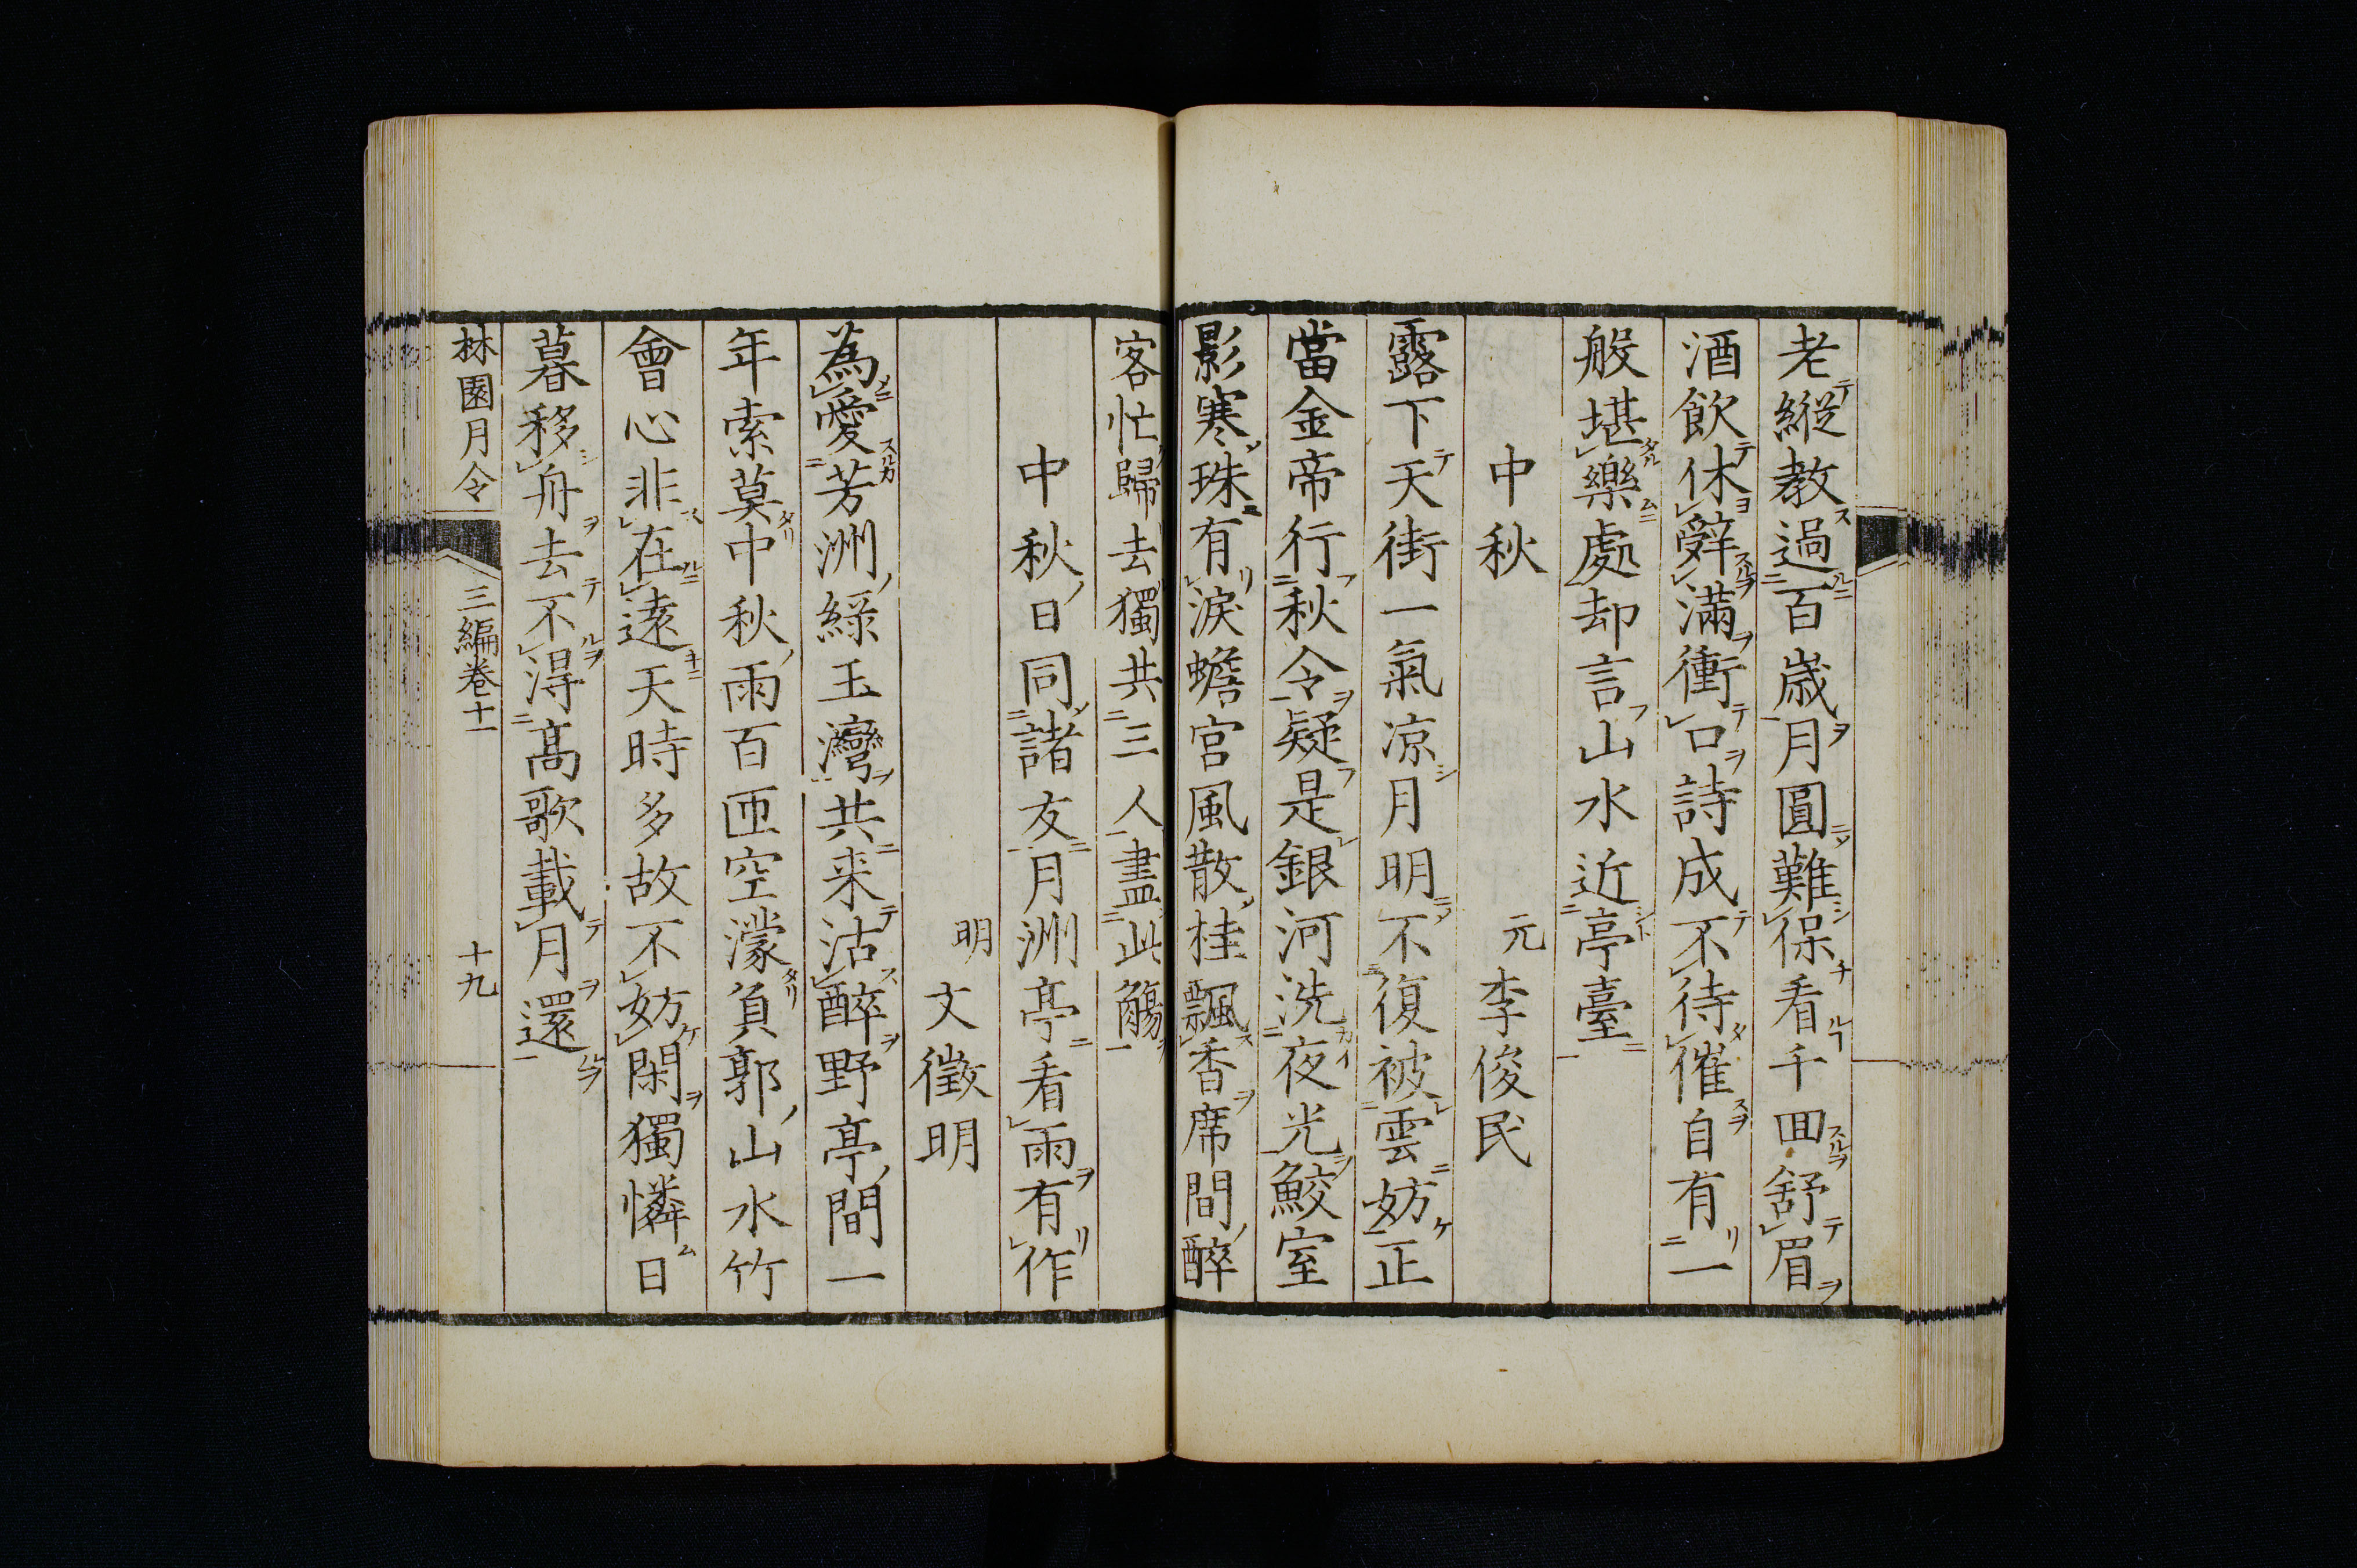 老縱教過百歳月圓難保看千囬舒眉
酒飲休辭滿衝口詩成不待催自有一
般堪樂處却言山水近亭臺
中秋
元 李俊民
露下天街一氣凉月明不復被雲妨正
當金帝行秋令疑是銀河洗夜光鮫室
影寒珠有淚蟾宮風散桂飄香席間醉
客忙歸去獨共三人盡此觴
中秋日同諸友月洲亭看雨有作
明 文徵明
為愛芳洲綠玉灣共来沽醉野亭間一
年索莫中秋雨百匝空濛負郭山水竹
會心非在遠天時多故不妨閑獨憐日
暮移舟去不得高歌載月還
林園月令 三編卷十一 十九